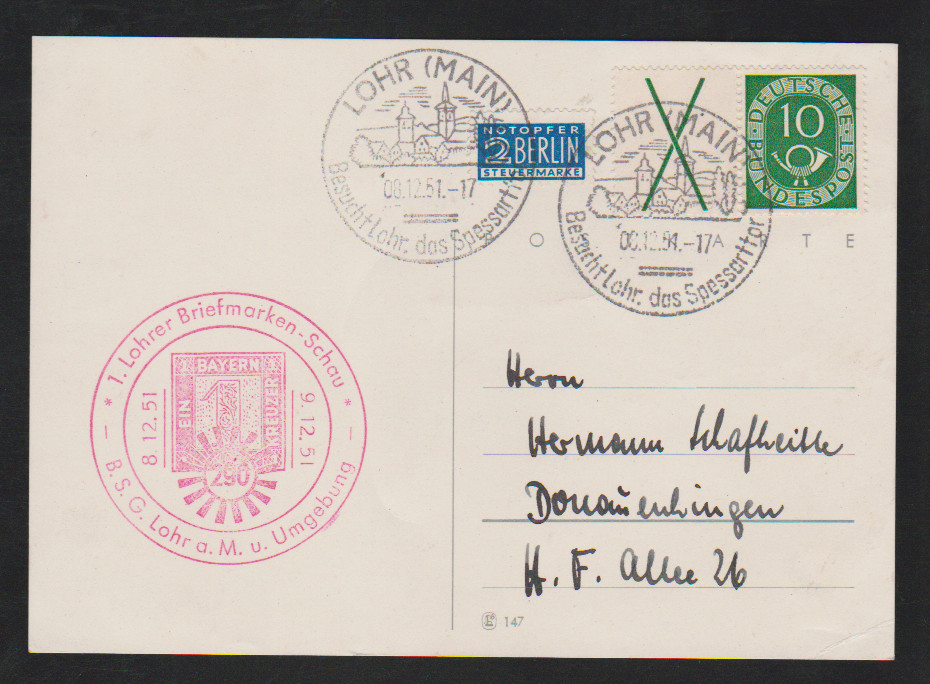 LOHR (MAIN)
08.12.51.-17
Besucht Lohr. das Spessarttor
NOTOPFER
2 BERLIN
STEUERMARKE
LOHR (MAIN)
08.12.51.-17
Besucht Lohr. das Spessarttor
DEUTSCHE
10
BUNDESPOST
O A T E
* 1. Lohrer Briefmarken-Schau *
8.12.51
BAYERN
EIN
1
KREUZER
290
9.12.51
B.S.G. Lohr a.M. u. Umgebung
Herrn
Hermann
Donaueschingen
H. F. Allee 26
147